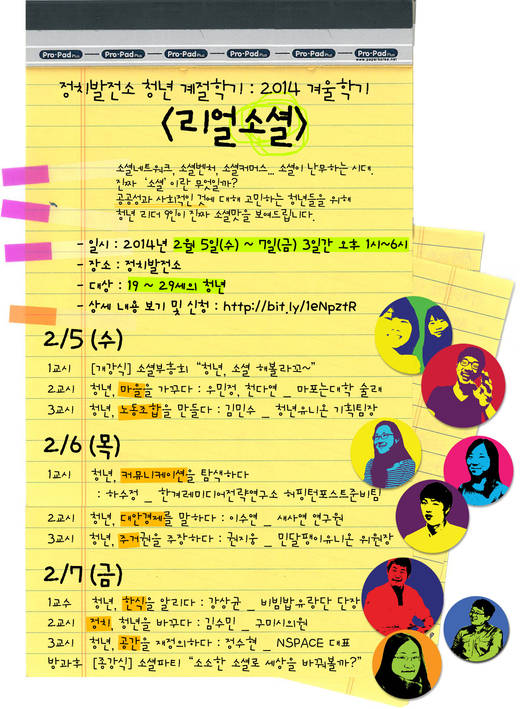 Pro·Pad Plus Pro·Pad Plus Pro·Pad Plus Pro·Pad Plus Pro·Pad Plus Pro·Pad Plus
www.paperkorea.net
정치발전소 청년 계절학기 : 2014 겨울학기
<리얼소셜>
소셜네트워크, 소셜벤처, 소셜커머스... 소셜이 난무하는 시대.
진짜 '소셜'이란 무엇일까?
공공성과 사회적인 것에 대해 고민하는 청년들을 위해
청년 리더 9인이 진짜 소셜맛을 보여드립니다.
- 일시 : 2014년 2월 5일(수) ~ 7일(금) 3일간 오후 1시~6시
- 장소 : 정치발전소
- 대상 : 19 ~ 29세의 청년
- 상세 내용 보기 및 신청 : http://bit.ly/1eNpztR
2/5 (수)
1교시 [개강식] 소셜부흥회 "청년, 소셜 해볼라꼬~"
2교시 청년, 마을을 가꾸다 : 우민정, 천다연 _ 마포는대학 술래
3교시 청년, 노동조합을 만들다 : 김민수 _ 청년유니온 기획팀장
2/6 (목)
1교시 청년, 커뮤니케이션을 탐색하다
: 하수정 _ 한겨레미디어전략연구소 허핑턴포스트준비팀
2교시 청년, 대안경제를 말하다 : 이수연 _ 새사연 연구원
3교시 청년, 주거권을 주장하다 : 권지웅 _ 민달팽이유니온 위원장
2/7 (금)
1교수 청년, 한식을 알리다 : 강상균 _ 비빔밥유랑단 단장
2교시 정치, 청년을 바꾸다 : 김수민 _ 구미시의원
3교시 청년, 공간을 재정의하다 : 정수현 _ NSPACE 대표
방과후 [종강식] 소셜파티 "소소한 소셜로 세상을 바꿔볼까?"